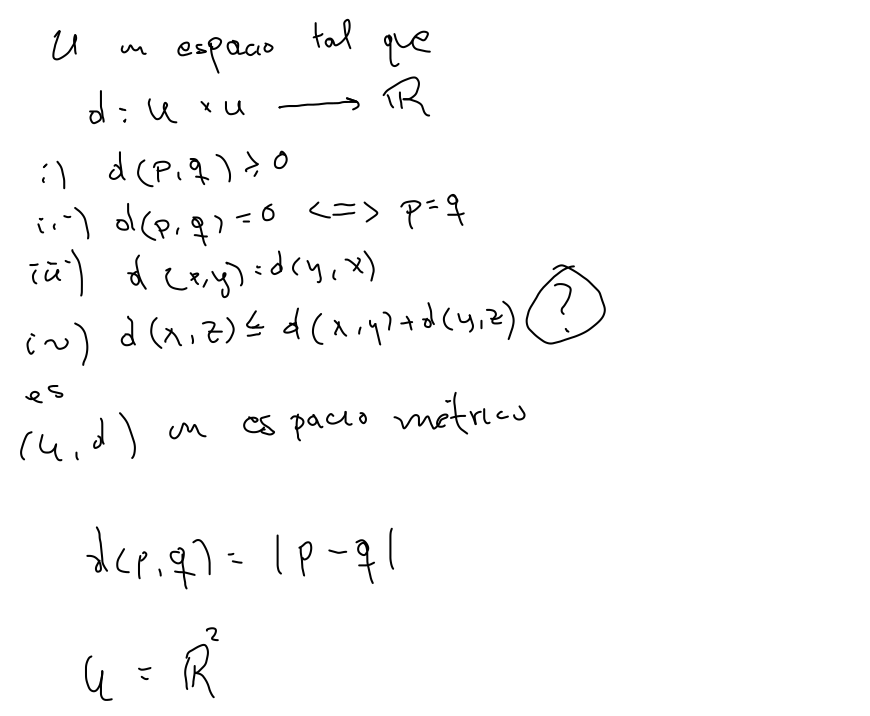 U un espacio tal que
d: U × U → ℝ
i) d(p,q) ≥ 0
ii) d(p,q) = 0 <=> p = q
iii) d(x,y) = d(y,x)
iv) d(x,z) ≤ d(x,y) + d(y,z) ?
es
(U,d) un espacio métrico
d(p,q) = |p - q|
U = ℝ²